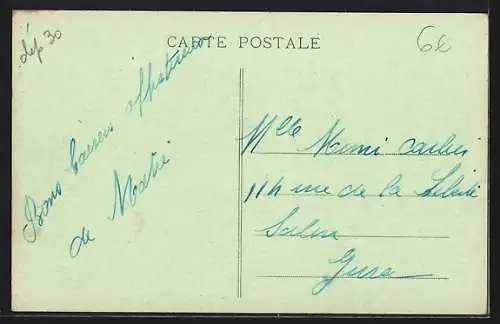 dép 30
CARTE POSTALE
66
Bons baisers affectueux
de
Mlle Mimi
114 rue de la Liberté
Salin
Jura